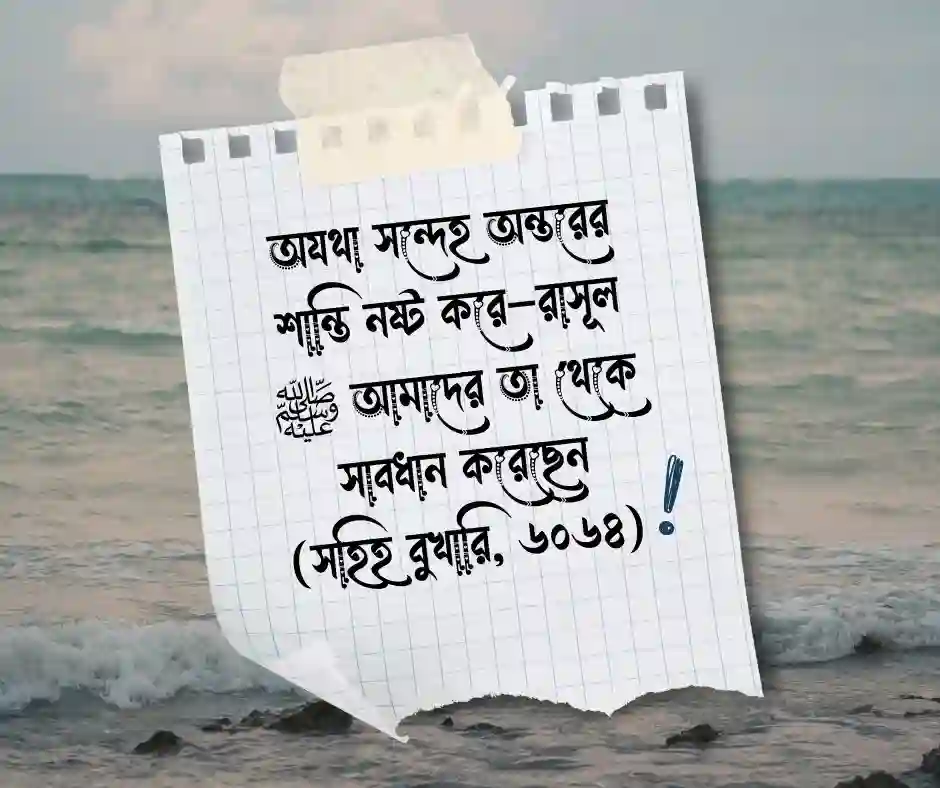 অযথা সন্দেহ অন্তরের
শান্তি নষ্ট করে–রাসূল
ﷺ আমাদের তা থেকে
সাবধান করেছেন
(সহিহ বুখারি, ৬০৬৪) !